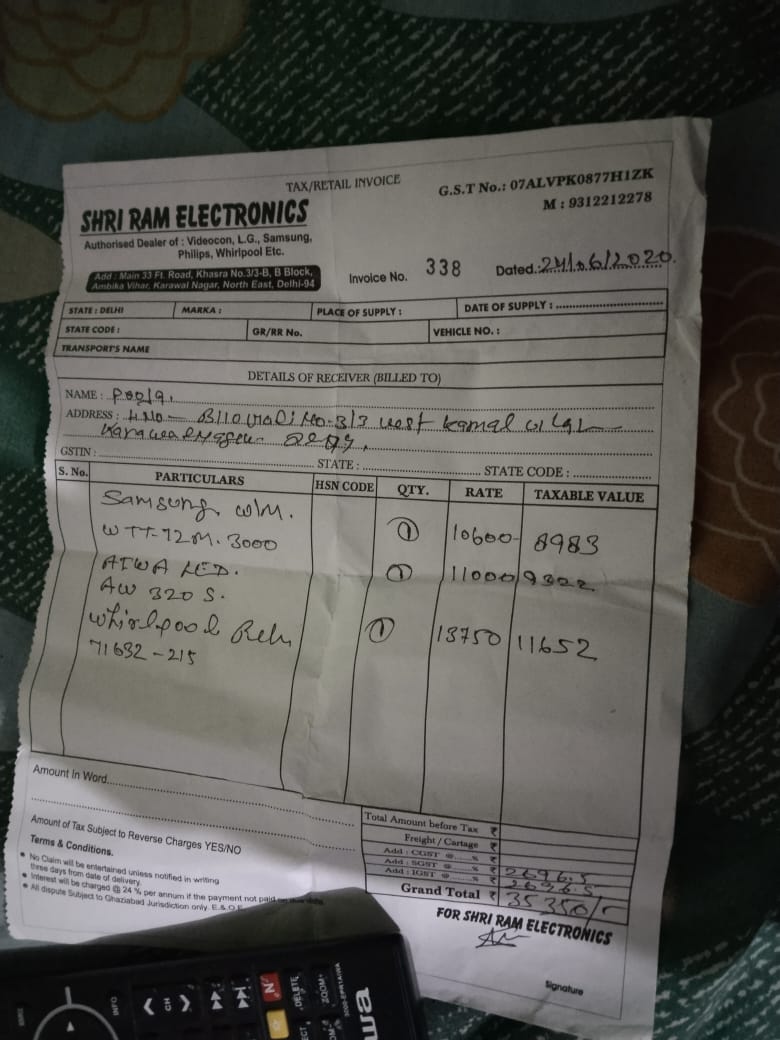 TAX/RETAIL INVOICE
G.S.T No.: 07ALVPK0877H1ZK
M : 9312212278
SHRI RAM ELECTRONICS
Authorised Dealer of : Videocon, L.G., Samsung,
Philips, Whirlpool Etc.
Add : Main 33 Ft. Road, Khasra No.3/3-B, B Block,
Ambika Vihar, Karawal Nagar, North East, Delhi-94
Invoice No. 338 Dated. 24/06/2020.
STATE : DELHI MARKA : PLACE OF SUPPLY : DATE OF SUPPLY :
STATE CODE : GR/RR No. VEHICLE NO. :
TRANSPORT'S NAME
DETAILS OF RECEIVER (BILLED TO)
NAME : Pooja.
ADDRESS : H.No - B110 Gali No-3/3 west kamal
GSTIN : STATE : STATE CODE :
S. No. PARTICULARS HSN CODE QTY. RATE TAXABLE VALUE
Samsung W/M.
WTT-72M. 3000 1 10600- 8983
AIWA LED. 1 11000 9322
AW 320 S.
Whirlpool 1 13750 11652
71632-215
Amount In Word
Amount of Tax Subject to Reverse Charges YES/NO
Terms & Conditions.
No Claim will be entertained unless notified in writing
three days from date of delivery.
Interest will be charged @ 24 % per annum if the payment not paid
All dispute Subject to Ghaziabad Jurisdiction only. E.& O.E
Total Amount before Tax ₹
Freight / Cartage ₹
Add : CGST @ % ₹ 2696.5
Add : SGST @ % ₹ 2696.5
Add : IGST @ % ₹
Grand Total ₹ 35350/-
FOR SHRI RAM ELECTRONICS
Signature
INFO
CH
N
DELETE
ZOOM+
wa